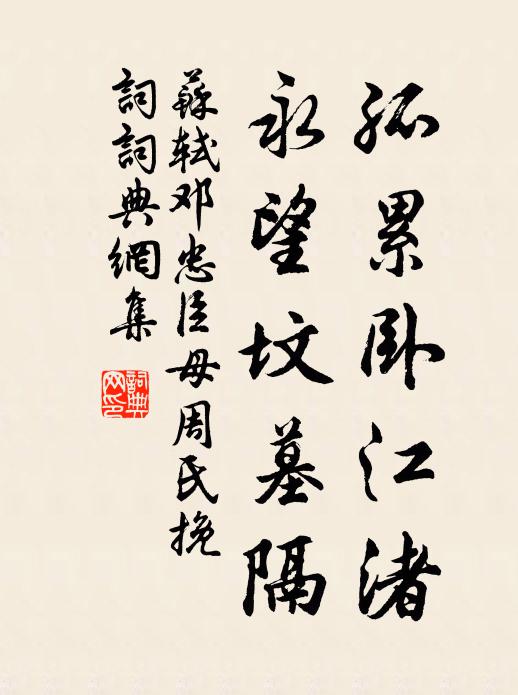 孤累卧江渚
永望坟墓隔
蘇軾邓忠臣母周氏挽
詞詞典網集
詞典网印